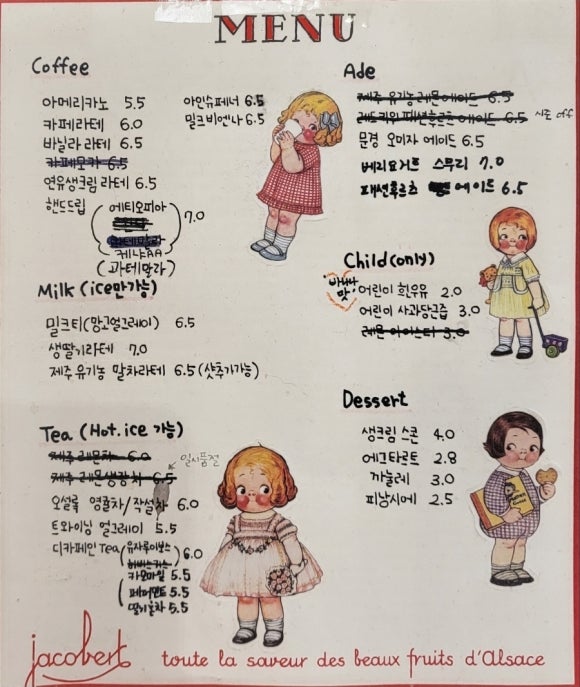 MENU
Coffee
아메리카노 5.5
카페라테 6.0
바닐라 라테 6.5
카페모카 6.5
연유생크림 라테 6.5
핸드드립
에티오피아
7.0
케냐AA
(과테말라)
아인슈페너 6.5
밀크비엔나 6.5
Milk (ice만가능)
밀크티(망고얼그레이) 6.5
생딸기라테 7.0
제주 유기농 말차라테 6.5 (샷추가가능)
Tea (Hot. ice 가능)
제주 레몬차 6.0
일시품절
제주 레몬생강차 6.5
오설록 영귤차/작설차 6.0
트와이닝 얼그레이 5.5
디카페인 Tea
유자루이보스
6.0
카모마일 5.5
페퍼민트 5.5
딸기홍차 5.5
Ade
제주 유기농 레몬에이드 6.5
패션후르츠 에이드 6.5 시즌 off
문경 오미자 에이드 6.5
베리요거트 스무디 7.0
패션후르츠 에이드 6.5
Child (only)
바나나
맛
어린이 흰우유 2.0
어린이 사과당근즙 3.0
레몬 아이스티 3.0
Dessert
생크림 스콘 4.0
에그타르트 2.8
까눌레 3.0
피낭시에 2.5
jacobert toute la saveur des beaux fruits d'Alsace